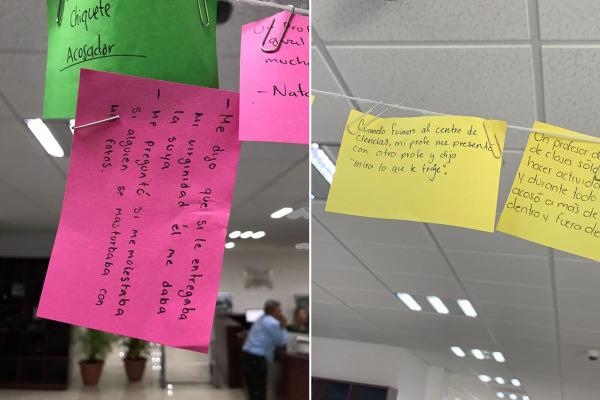 Chiquete
Acosador
- Me dijo que si le entregaba
mi virginidad él me daba
la suya
- Me preguntó si me molestaba
si alguien se masturbaba con
fotos.
mucho
- Nata
Cuando fuimos al centro de
ciencias, mi profe me presentó
con otro profe y dijo
"mira lo que te traje".
Un profesor de
de clases sólo
hacer actividad
y durante todo
acosó a más de
dentro y fuera de